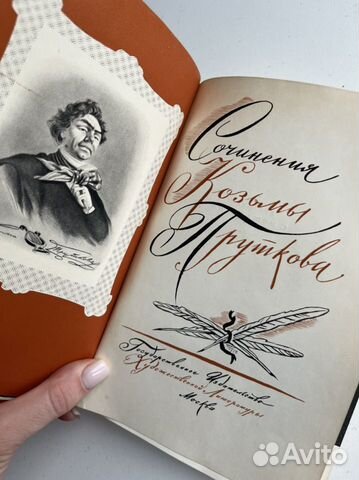 Сочинения
Козьмы
Пруткова
Государственное Издательство
Художественной Литературы
Москва
Avito